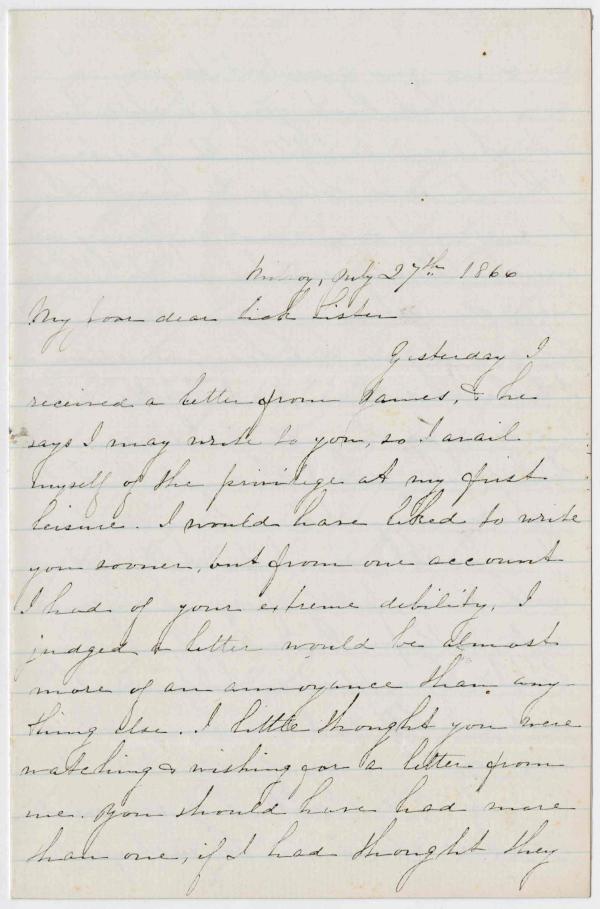 July 27th 1866
My poor dear sick sister
Yesterday I
received a letter from James, & he
says I may write to you, so I avail
myself of the privilege at my first
leisure. I would have liked to write
you sooner, but from one account
I had of your extreme debility, I
judged a letter would be almost
more of an annoyance than any-
thing else. I little thought you were
watching & wishing for a letter from
me. You should have had more
than one, if I had thought they